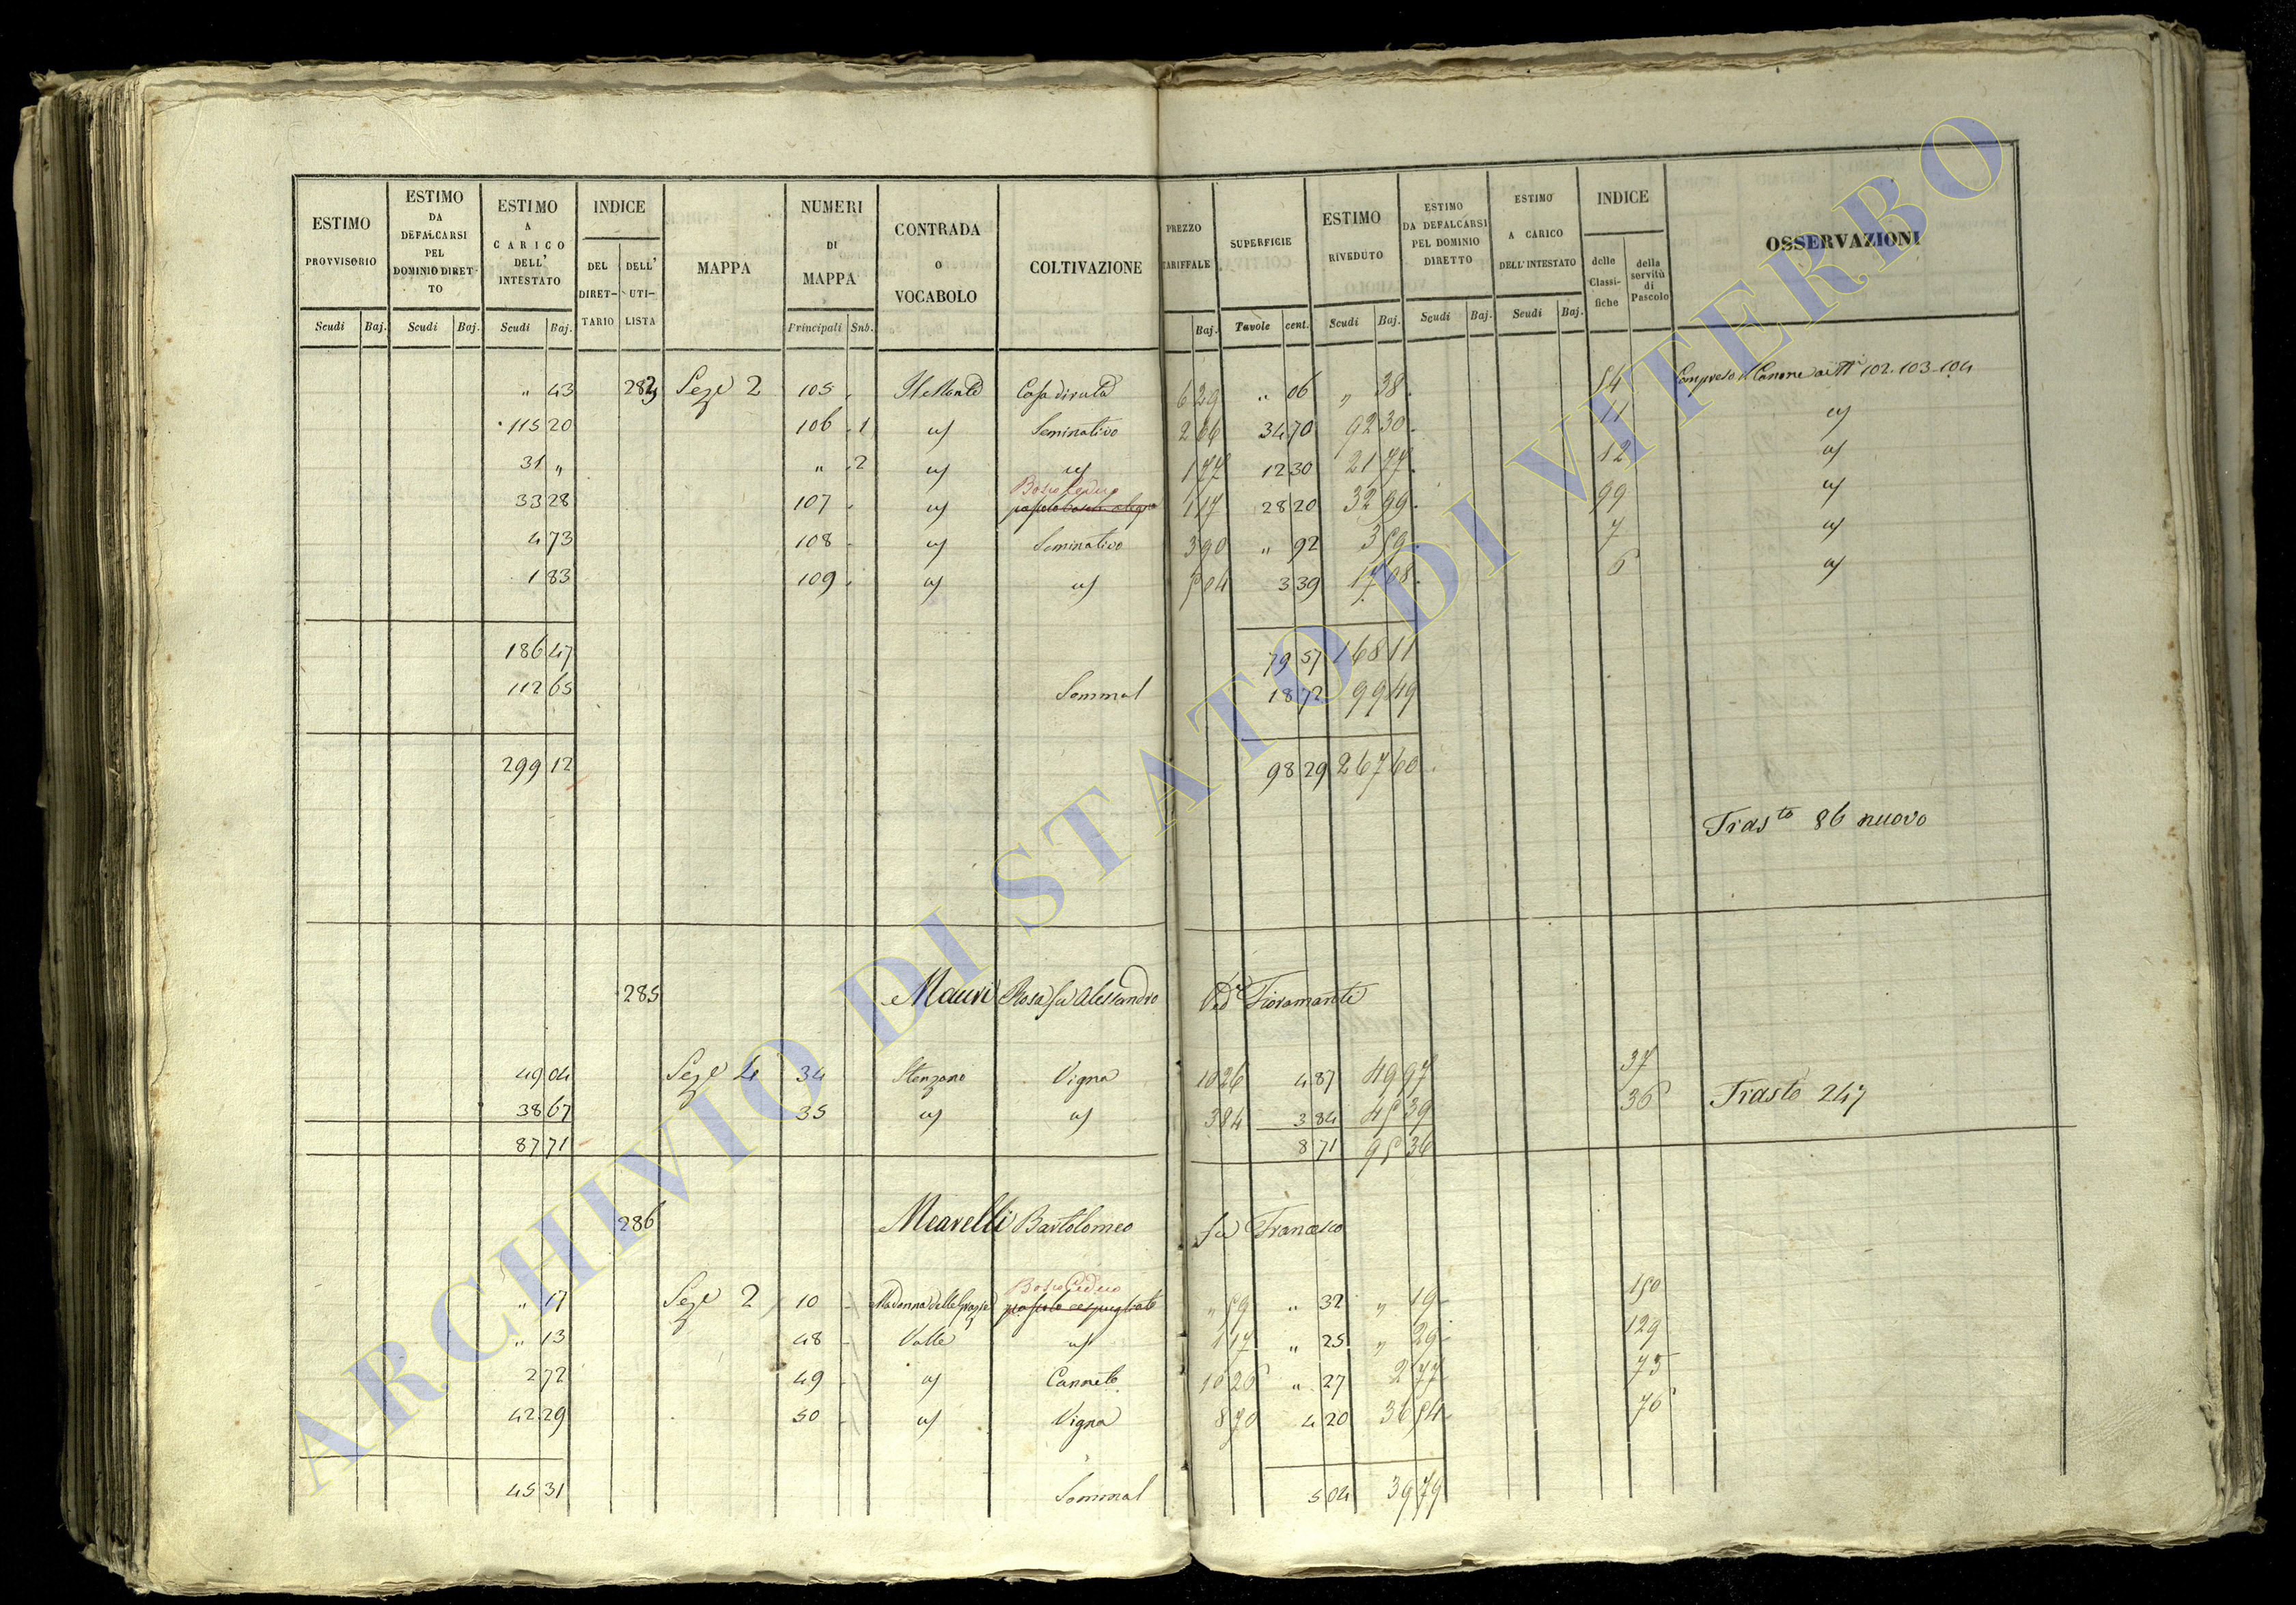 ESTIMO PROVVISORIO | ESTIMO DA DEFALCARSI PEL DOMINIO DIRETTO | ESTIMO A CARICO DELL' INTESTATO | INDICE | MAPPA | NUMERI DI MAPPA | CONTRADA O VOCABOLO | COLTIVAZIONE | PREZZO TARIFFALE | SUPERFICIE | ESTIMO RIVEDUTO | ESTIMO DA DEFALCARSI PEL DOMINIO DIRETTO | ESTIMO A CARICO DELL'INTESTATO | INDICE | OSSERVAZIONI
DEL DIRET-TARIO | DELL' UTI-LISTA | delle Classi-fiche | della servitù di Pascolo
Scudi | Baj. | Scudi | Baj. | Scudi | Baj. | Principali | Sub. | Baj. | Tavole | cent. | Scudi | Baj. | Scudi | Baj. | Scudi | Baj.
" 43 | Sez.e 2 | 105 | Casa diruta | 6 29 | " 06 | " 38 | 54 | Compreso Canone ai N 102.103.104
115 20 | 106 . 1 | " | Seminativo | 2 66 | 34 70 | 92 30 | 11 | "
31 " | " . 2 | " | " | 1 77 | 12 30 | 21 77 | 12 | "
Bosco Ceduo
33 28 | 107 | " | 1 17 | 28 20 | 32 99 | 99 | "
4 73 | 108 | " | Seminativo | 3 90 | " 92 | 3 59 | 7 | "
1 83 | 109 | " | " | 5 04 | 3 39 | 17 08 | 6 | "
186 47 | 79 57 | 168 11
112 65 | Somma | 18 72 | 99 49
299 12 | 98 29 | 267 60
Trasto 86 nuovo
285 | Mauri Rosa fu Alessandro Ved Fioramanti
49 04 | Sez.e 4 | 34 | Stenzano | Vigna | 10 26 | 4 87 | 49 97 | 37
38 67 | 35 | " | " | 3 84 | 45 39 | 36 | Trasto 247
87 71 | 8 71 | 95 36
286 | Mearelli Bartolomeo fu Francesco
Bosco Ceduo
" 17 | Sez.e 2 | 10 | Madonna delle Grazie | pascolo cespugliato | " 59 | " 32 | " 19 | 150
" 13 | 48 | Valle | " | 1 17 | " 25 | " 29 | 129
2 72 | 49 | " | Canneto | 10 26 | " 27 | 2 77 | 75
42 29 | 50 | " | Vigna | 8 70 | 4 20 | 36 54 | 76
45 31 | Somma | 5 04 | 39 79
ARCHIVIO DI STATO DI VITERBO